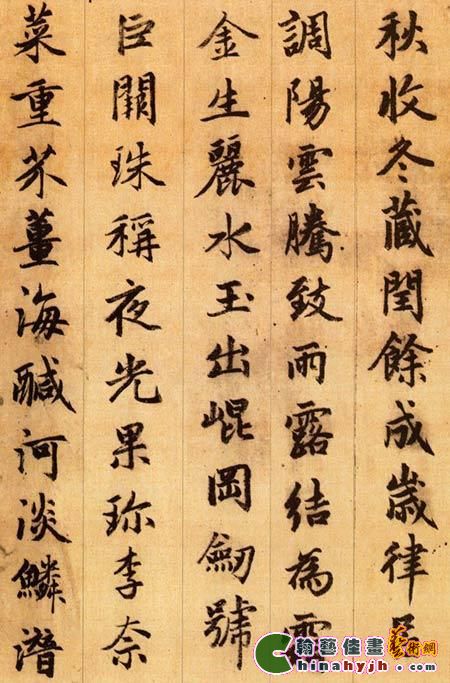 秋收冬藏閏餘成歲律呂
調陽雲騰致雨露結為霜
金生麗水玉出崐岡劒號
巨闕珠稱夜光果珍李奈
菜重芥薑海醎河淡鱗潛
翰藝佳畫藝術網
Chinahyjh.com